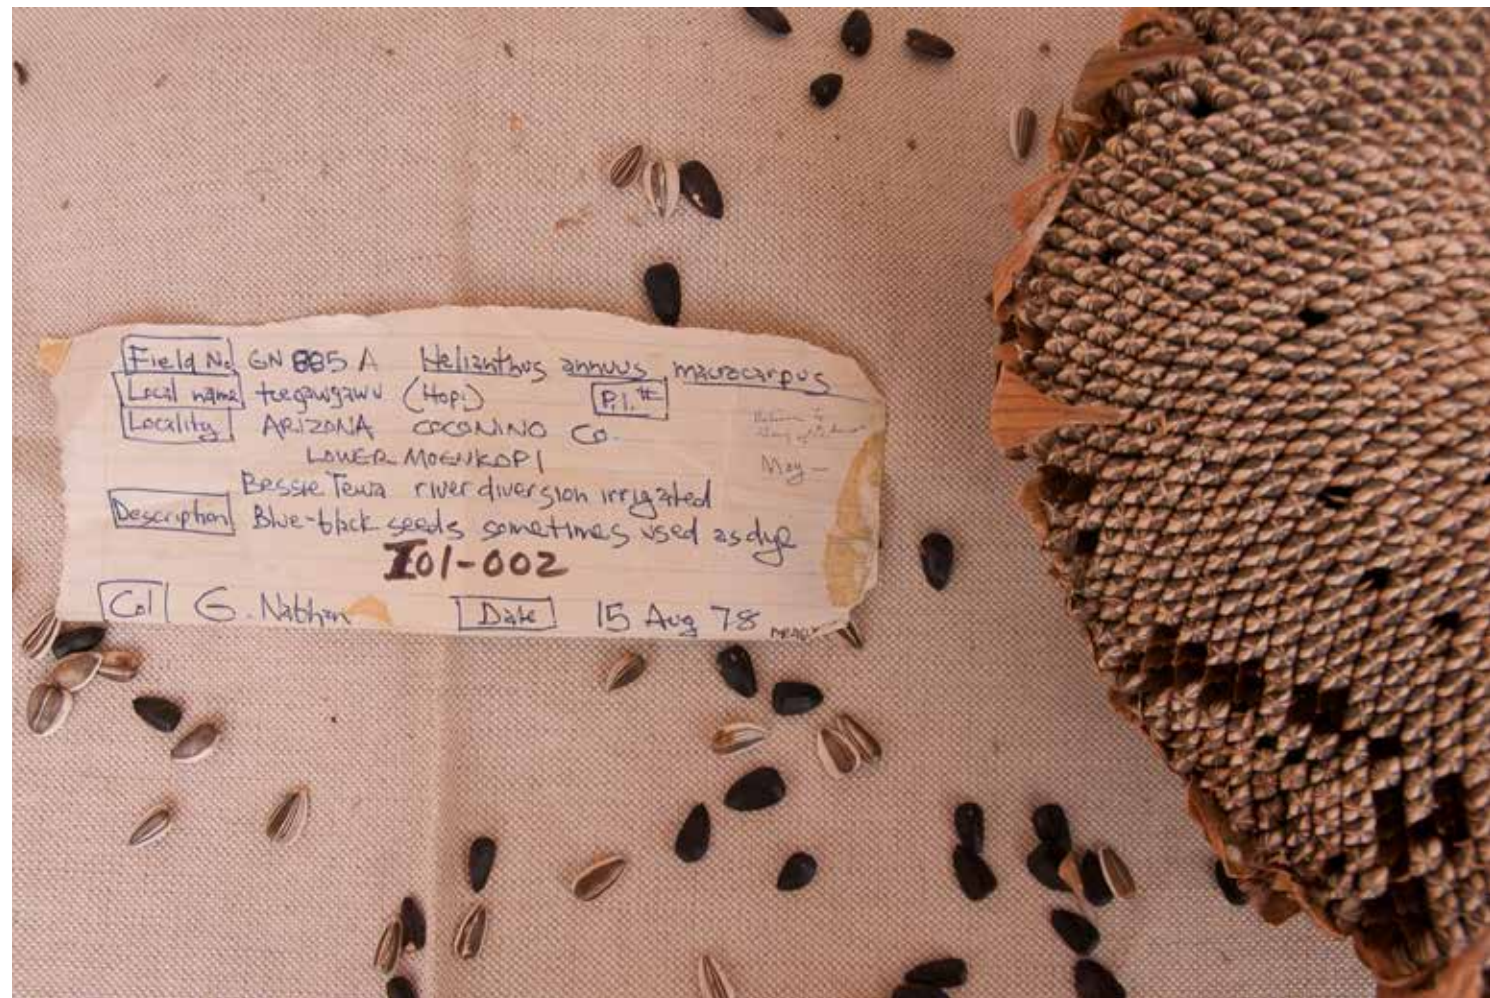 Field No. GN 885 A Helianthus annuus macrocarpus
Local name tceqawgawu (Hopi) P.I.#
Locality ARIZONA COCONINO Co.
LOWER MOENKOPI
May —
Bessie Tewa river diversion irrigated
Description Blue-black seeds sometimes used as dye
I01-002
Col G. Nabhan Date 15 Aug 78